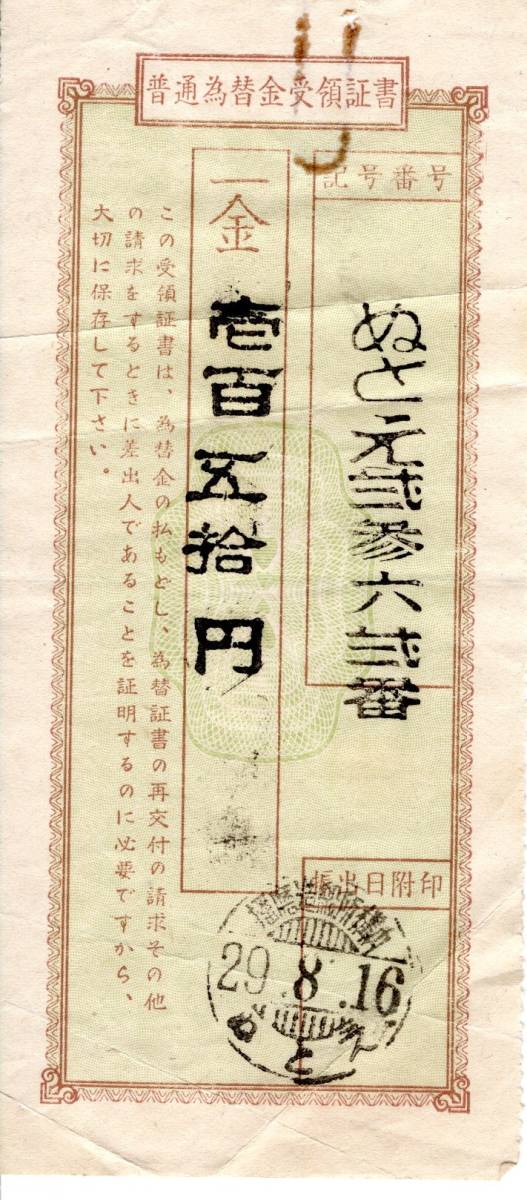 普通為替金受領証書
記号番号
ぬさ元弐参六弐番
一金
壱百五拾円
この受領証書は、為替金の払もどし、為替証書の再交付の請求その他
の請求をするときに差出人であることを証明するのに必要ですから、
大切に保存して下さい。
振出日附印
29.8.16